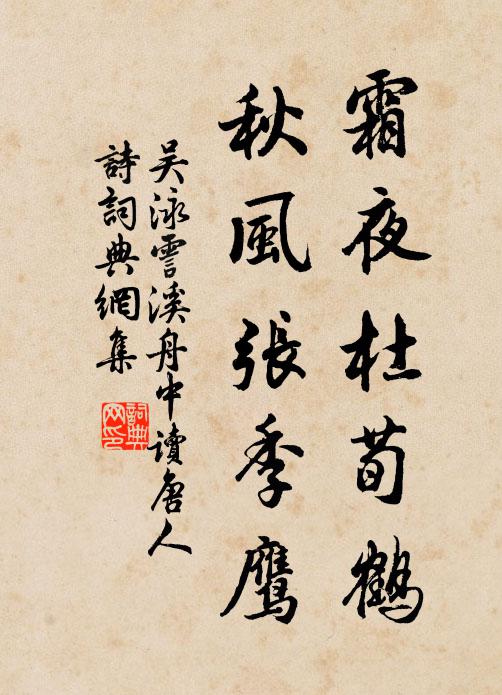 霜夜杜荀鶴
秋風張季鹰
吴泳雲溪舟中讀唐人
詩詞典網集
詞典网印